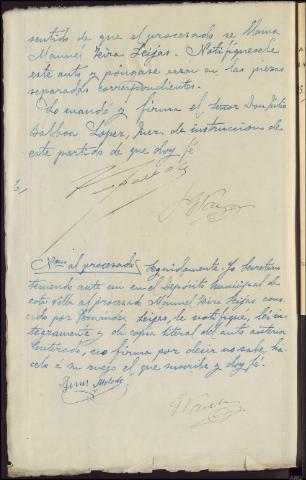 sentido de que el procesado se llama
Manuel Neira Leijas. Notifíquesele
este auto y póngase en las piezas
separadas correspondientes.
Lo mandó y firma el Señor Don Julio
Balboa López, Juez de instrucción de
este partido de que doy fé
Notn al procesado Seguidamente Yo Secretario
teniendo ante mi en el Depósito Municipal de
esta Villa al procesado Manuel Neira Leijas cono-
cido por Fernández Leijas, le notifiqué, leí in-
tegramente y di copia literal del auto anterior
Enterado, no firma por decir no sabe, há-
celo á su ruego el que suscribe y doy fé.